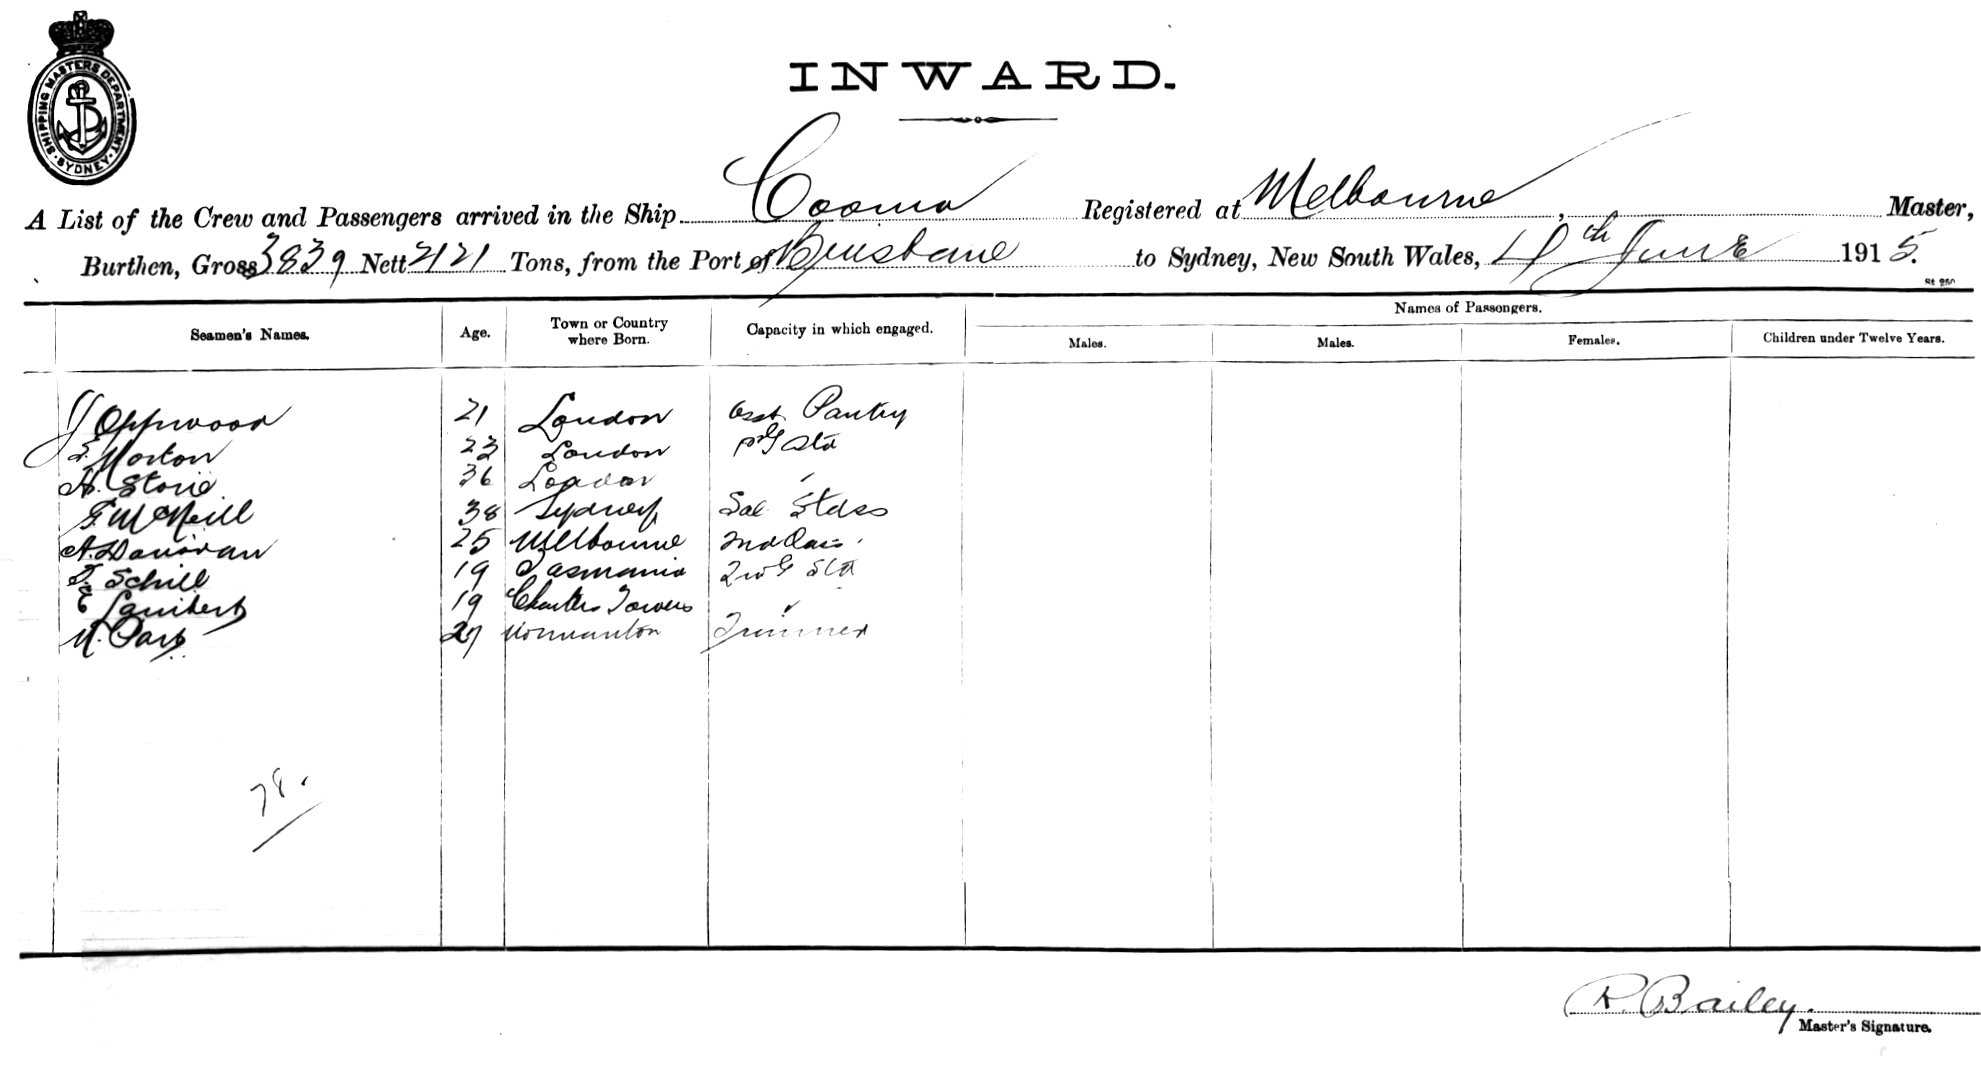 SHIPPING MASTERS DEPARTMENT
SYDNEY
INWARD.
A List of the Crew and Passengers arrived in the Ship Cooma Registered at Melbourne, Master,
Burthen, Gross 3839 Nett 2121 Tons, from the Port of Brisbane to Sydney, New South Wales, 4th June 1915.
Names of Passengers.
Seamen's Names. Age. Town or Country where Born. Capacity in which engaged. Males. Males. Females. Children under Twelve Years.
21 London Asst Pantry
Morton 23 London Std
H. Storie 36 London
F. McNeill 38 Sydney Sal Stdss
A. Donovan 25 Melbourne
Schill 19 Tasmania Std
E Lambert 19 Charters Towers
27 Normanton Trimmer
78.
R. Bailey.
Master's Signature.